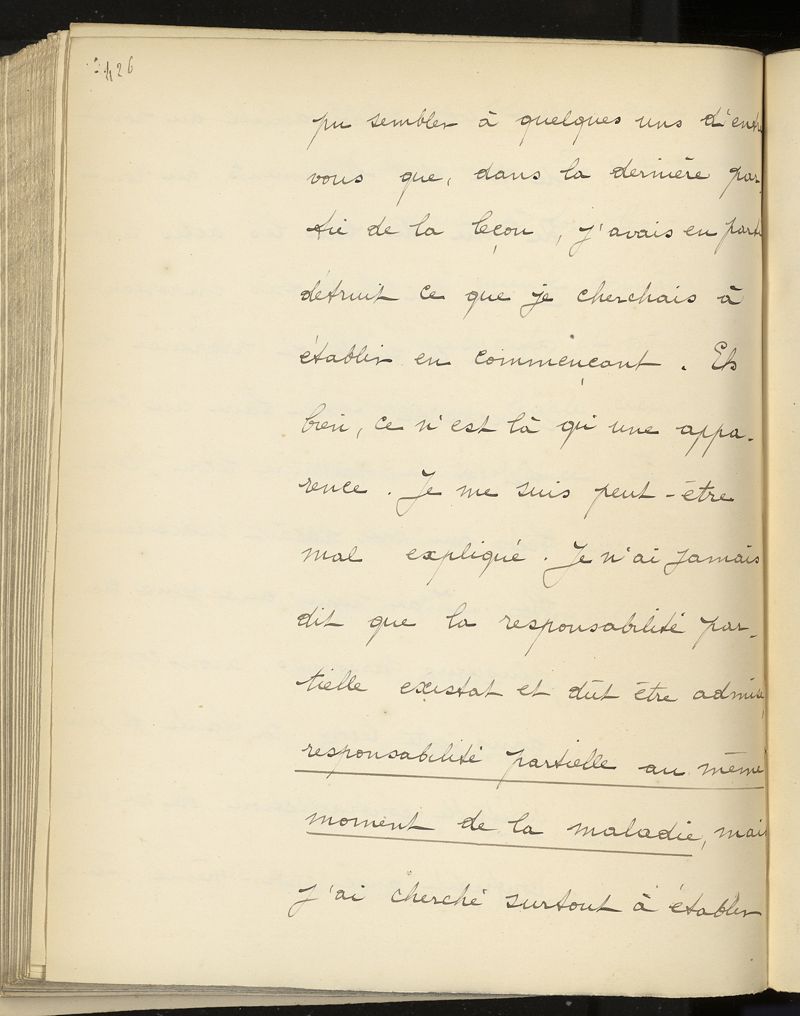 426
pu sembler à quelques uns d'entre
vous que, dans la dernière par-
tie de la leçon, j'avais en parti
détruit ce que je cherchais à
établir en commençant. Eh
bien, ce n'est là qu'une appa-
rence. Je me suis peut-être
mal expliqué. Je n'ai jamais
dit que la responsabilité par-
tielle existat et dût être admise,
responsabilité partielle au même
moment de la maladie, mais
j'ai cherché surtout à établir